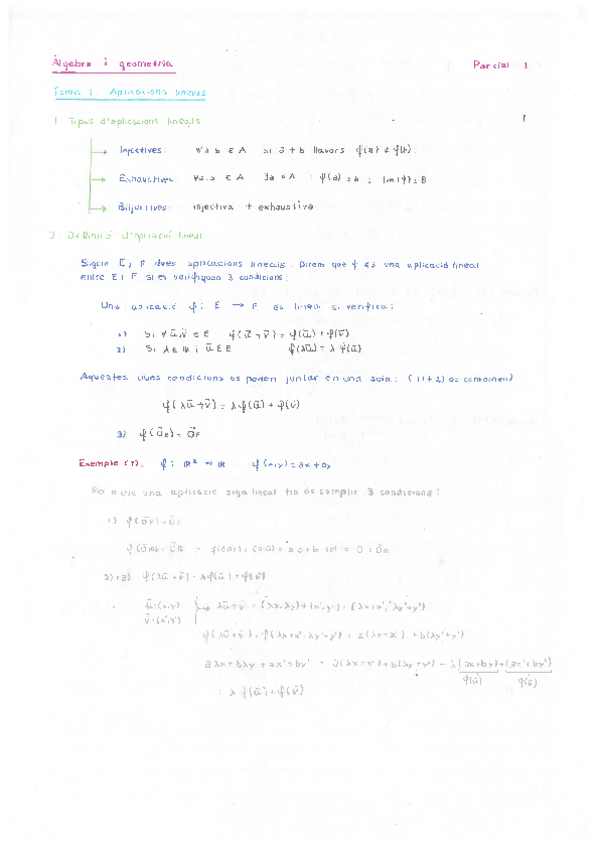 Àlgebra i geometria
Parcial 1
Tema 1: Aplicacions lineals
1. Tipus d'aplicacions lineals
Injectives: ∀a,b ∈ A si a ≠ b llavors φ(a) ≠ φ(b).
Exhaustives: b ∈ A ∃a ∈ A : φ(a) = b ; Im(φ) = B
Bijectives: injectiva + exhaustiva
2. Definició d'aplicació lineal
Siguin E i F dues aplicacions lineals, direm que φ és una aplicació lineal
entre E i F si es verifiquen 3 condicions:
Una aplicació φ: E → F és lineal si verifica:
1) Si ∀ū,v̄ ∈ E φ(ū+v̄) = φ(ū) + φ(v̄)
2) Si λ ∈ ℝ i ū ∈ E φ(λū) = λφ(ū)
Aquestes dues condicions es poden juntar en una sola: (1+2) es combinen)
φ(λū+v̄) = λφ(ū) + φ(v̄)
3) φ(0̄E) = 0̄F
Exemple (7). φ: ℝ² → ℝ φ(x,y) = ax+by
Per a que una aplicació siga lineal ha de complir 3 condicions:
1) φ(0̄E) = 0̄F
2)+3) φ(λū+v̄) = λφ(ū)+φ(v̄)
ū=(x,y)
v̄=(x',y')
λū+v̄ = (λx,λy)+(x',y') = (λx+x', λy+y')
φ(λū+v̄) = φ(λx+x', λy+y') = a(λx+x') + b(λy+y')
aλx+bλy + ax'+by' = a(λx+x')+b(λy+y') = λ(ax+by)+(ax'+by')
φ(ū) φ(v̄)
= λφ(ū)+φ(v̄)